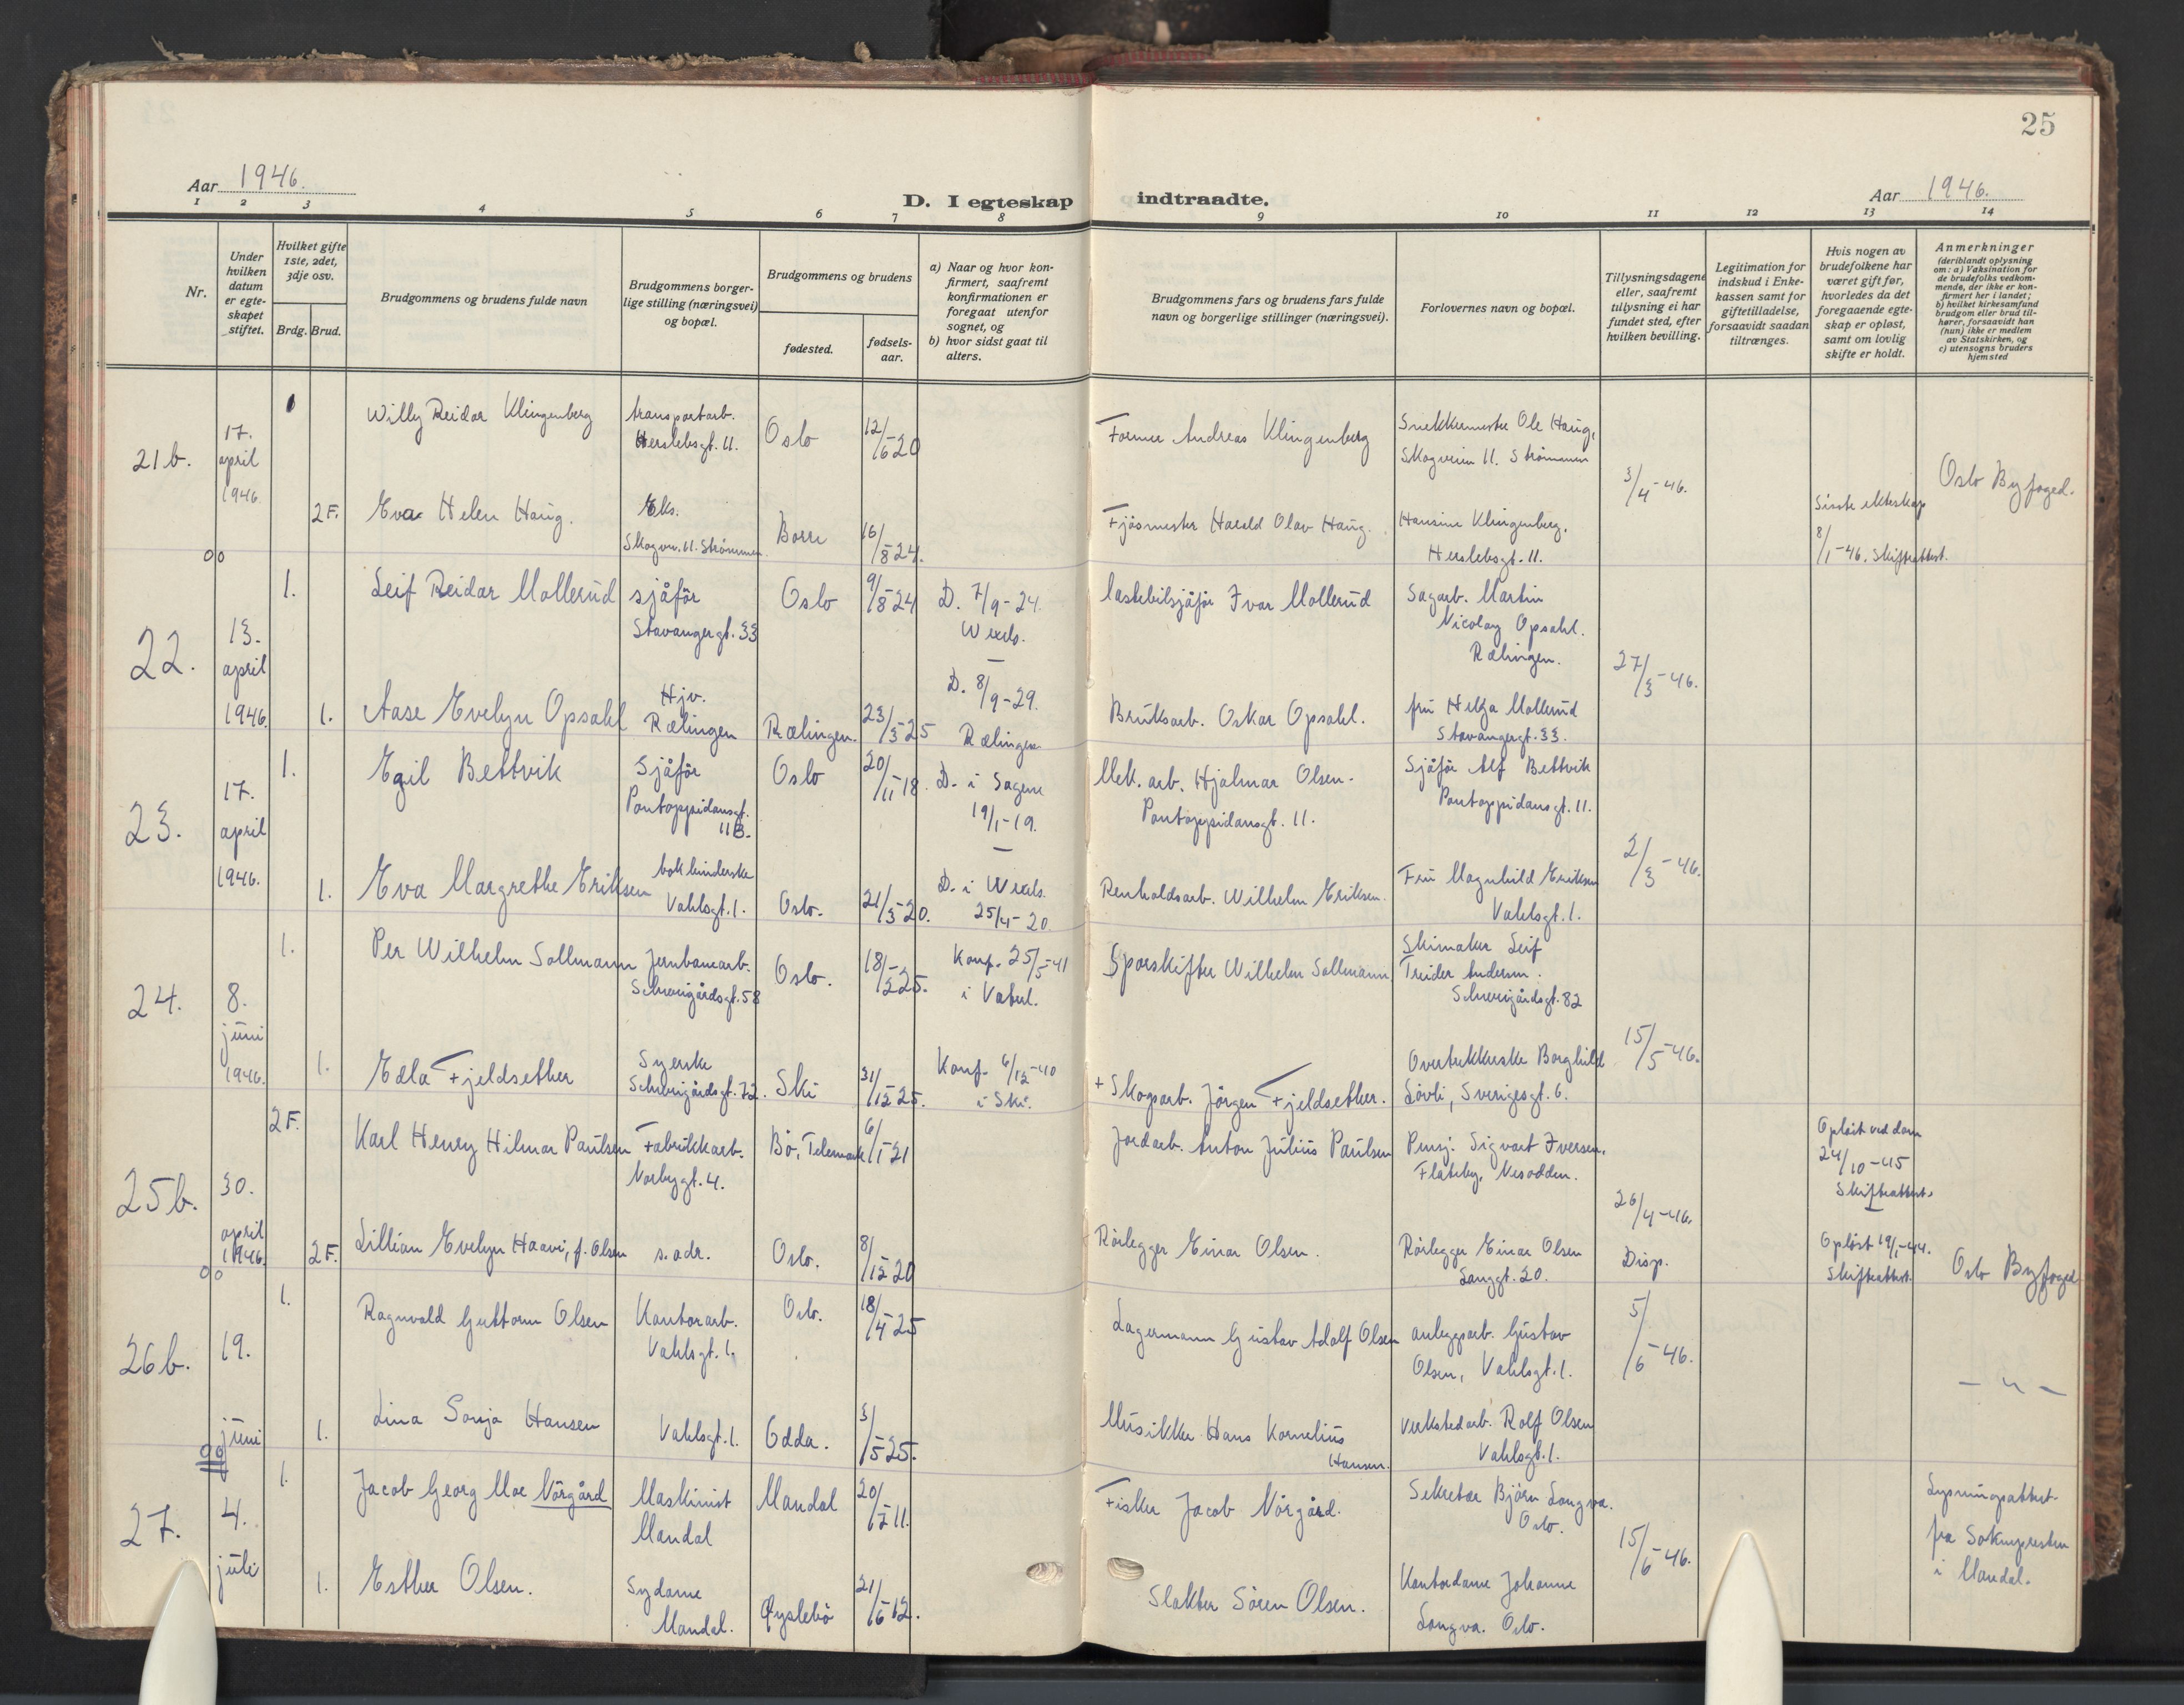 25
Aar 1946.
D. I egteskap indtraadte.
Aar 1946.
1 2 3 4 5 6 7 8 9 10 11 12 13 14
Nr.
Under hvilken datum er egteskapet stiftet.
Hvilket gifte 1ste, 2det, 3dje osv.
Brdg. Brud.
Brudgommens og brudens fulde navn
Brudgommens borgerlige stilling (næringsvei) og bopæl.
Brudgommens og brudens
fødested.
fødsels-aar.
a) Naar og hvor konfirmert, saafremt konfirmationen er foregaat utenfor sognet, og
b) hvor sidst gaat til alters.
Brudgommens fars og brudens fars fulde navn og borgerlige stillinger (næringsvei).
Forlovernes navn og bopæl.
Tillysningsdagene eller, saafremt tillysning ei har fundet sted, efter hvilken bevilling.
Legitimation for indskud i Enkekassen samt for giftetilladelse, forsaavidt saadan tiltrænges.
Hvis nogen av brudefolkene har været gift før, hvorledes da det foregaaende egteskap er opløst, samt om lovlig skifte er holdt.
Anmerkninger (deriblandt oplysning om: a) Vaksination for de brudefolks vedkommende, der ikke er konfirmert her i landet; b) hvilket kirkesamfund brudgom eller brud tilhører, forsaavidt han (hun) ikke er medlem av Statskirken, og c) utensogns bruders hjemsted
21b.
17. april 1946.
1
Willy Reidar Klingenberg
transportarb.
Herslebsgt. 11.
Oslo
12/6-20
Former Andreas Klingenberg
Snekkermester Ole Haug,
Skogveien 11. Strømmen
3/4-46.
Oslo Byfoged.
2F.
Eva Helen Haug.
Eks.
Skogvn. 11. Strømmen.
Borre
16/8-24.
Fjøsmester Harald Olav Haug.
Hansine Klingenberg.
Herslebsgt. 11.
Siste ekteskap
8/1-46. Skifteattest.
oo
22.
13. april 1946.
1.
Leif Reidar Mollerud
sjåfør
Stavangergt. 33
Oslo
9/8-24
D. 7/9-24.
Wexels.
lastebilsjåfør Ivar Mollerud
Sagarb. Martin
Nicolay Opsahl.
Rælingen.
27/3-46.
1.
Aase Evelyn Opsahl
Hjv.
Rælingen
Rælingen.
23/3-25
D. 8/9-29.
Rælingen
Bruksarb. Oskar Opsahl.
fru Helga Mollerud
Stavangergt. 33.
23.
17. april 1946.
1.
Egil Bettvik
Sjåfør
Pontoppidansgt.
11B.
Oslo
20/11-18.
D. i Sagene
19/1-19.
Mek. arb. Hjalmar Olsen.
Pontoppidansgt. 11.
Sjåfør Alf Bettvik
Pontoppidansgt. 11.
2/3-46.
1.
Eva Margrethe Eriksen
bokbinderske
Vahlsgt. 1.
Oslo.
21/3-20.
D. i Wexels.
25/4-20.
Renholdsarb. Wilhelm Eriksen.
Fru Magnhild Eriksen
Vahlsgt. 1.
24.
8. juni 1946.
1.
Per Wilhelm Sollmann
Jernbanearb.
Schweigårdsgt. 58
Oslo.
Konf. 25/5-41
i Vaterl.
Sporskifter Wilhelm Sollmann
Skimaker Leif
Treider Andersen.
Schweigårdsgt. 82
15/5-46.
1.
Edla Fjeldsether
Syerske
Schweigårdsgt. 72.
Ski
31/12-25.
Konf. 6/12-40
i Ski.
+ Skogsarb. Jörgen Fjeldsether.
Overtrekkerske Borghild
Lövli, Sverigesgt. 6.
25b.
30. april 1946.
2F.
Karl Henry Hilmar Paulsen
Fabrikkarb.
Norbygt. 4.
Bö, Telemark
6/1-21
Jordarb. Anton Julius Paulsen
Pensj. Sigvart Iversen.
Flateby, Nesodden.
26/4-46.
Disp.
Opløst ved dom
24/10-45
Skifteattest.
2F.
Lillian Evelyn Haavi, f. Olsen
s. adr.
Oslo.
8/12-20
Rörlegger Einar Olsen.
Rörlegger Einar Olsen
Langgt. 20.
Opløst 19/1-44.
Skifteattest.
Oslo Byfoged
oo
26b.
19. juni
1.
Ragnvald Guttorm Olsen
Kontorarb.
Vahlsgt. 1.
Oslo.
18/4-25
Lagermann Gustav Adolf Olsen
anleggsarb. Gustav
Olsen, Vahlsgt. 1.
5/6-46.
— " —
1.
Lina Sonja Hansen
Vahlsgt. 1.
Odda.
3/5-25.
Musikker Hans Kornelius
Hansen.
Verkstedarb. Rolf Olsen
Vahlsgt. 1.
oo
27.
4. juli
1.
Jacob Georg Moe Nörgård
Maskinist
Mandal
Mandal
Fisker Jacob Nörgård.
Sekretær Björn Langva.
Oslo.
15/6-46.
Lysningsattest
fra Soknepresten
i Mandal.
1.
Esther Olsen.
Sydame
Mandal.
Øyslebö
21/6-12.
Slakter Sören Olsen.
Kontordame Johanne
Langva. Oslo.